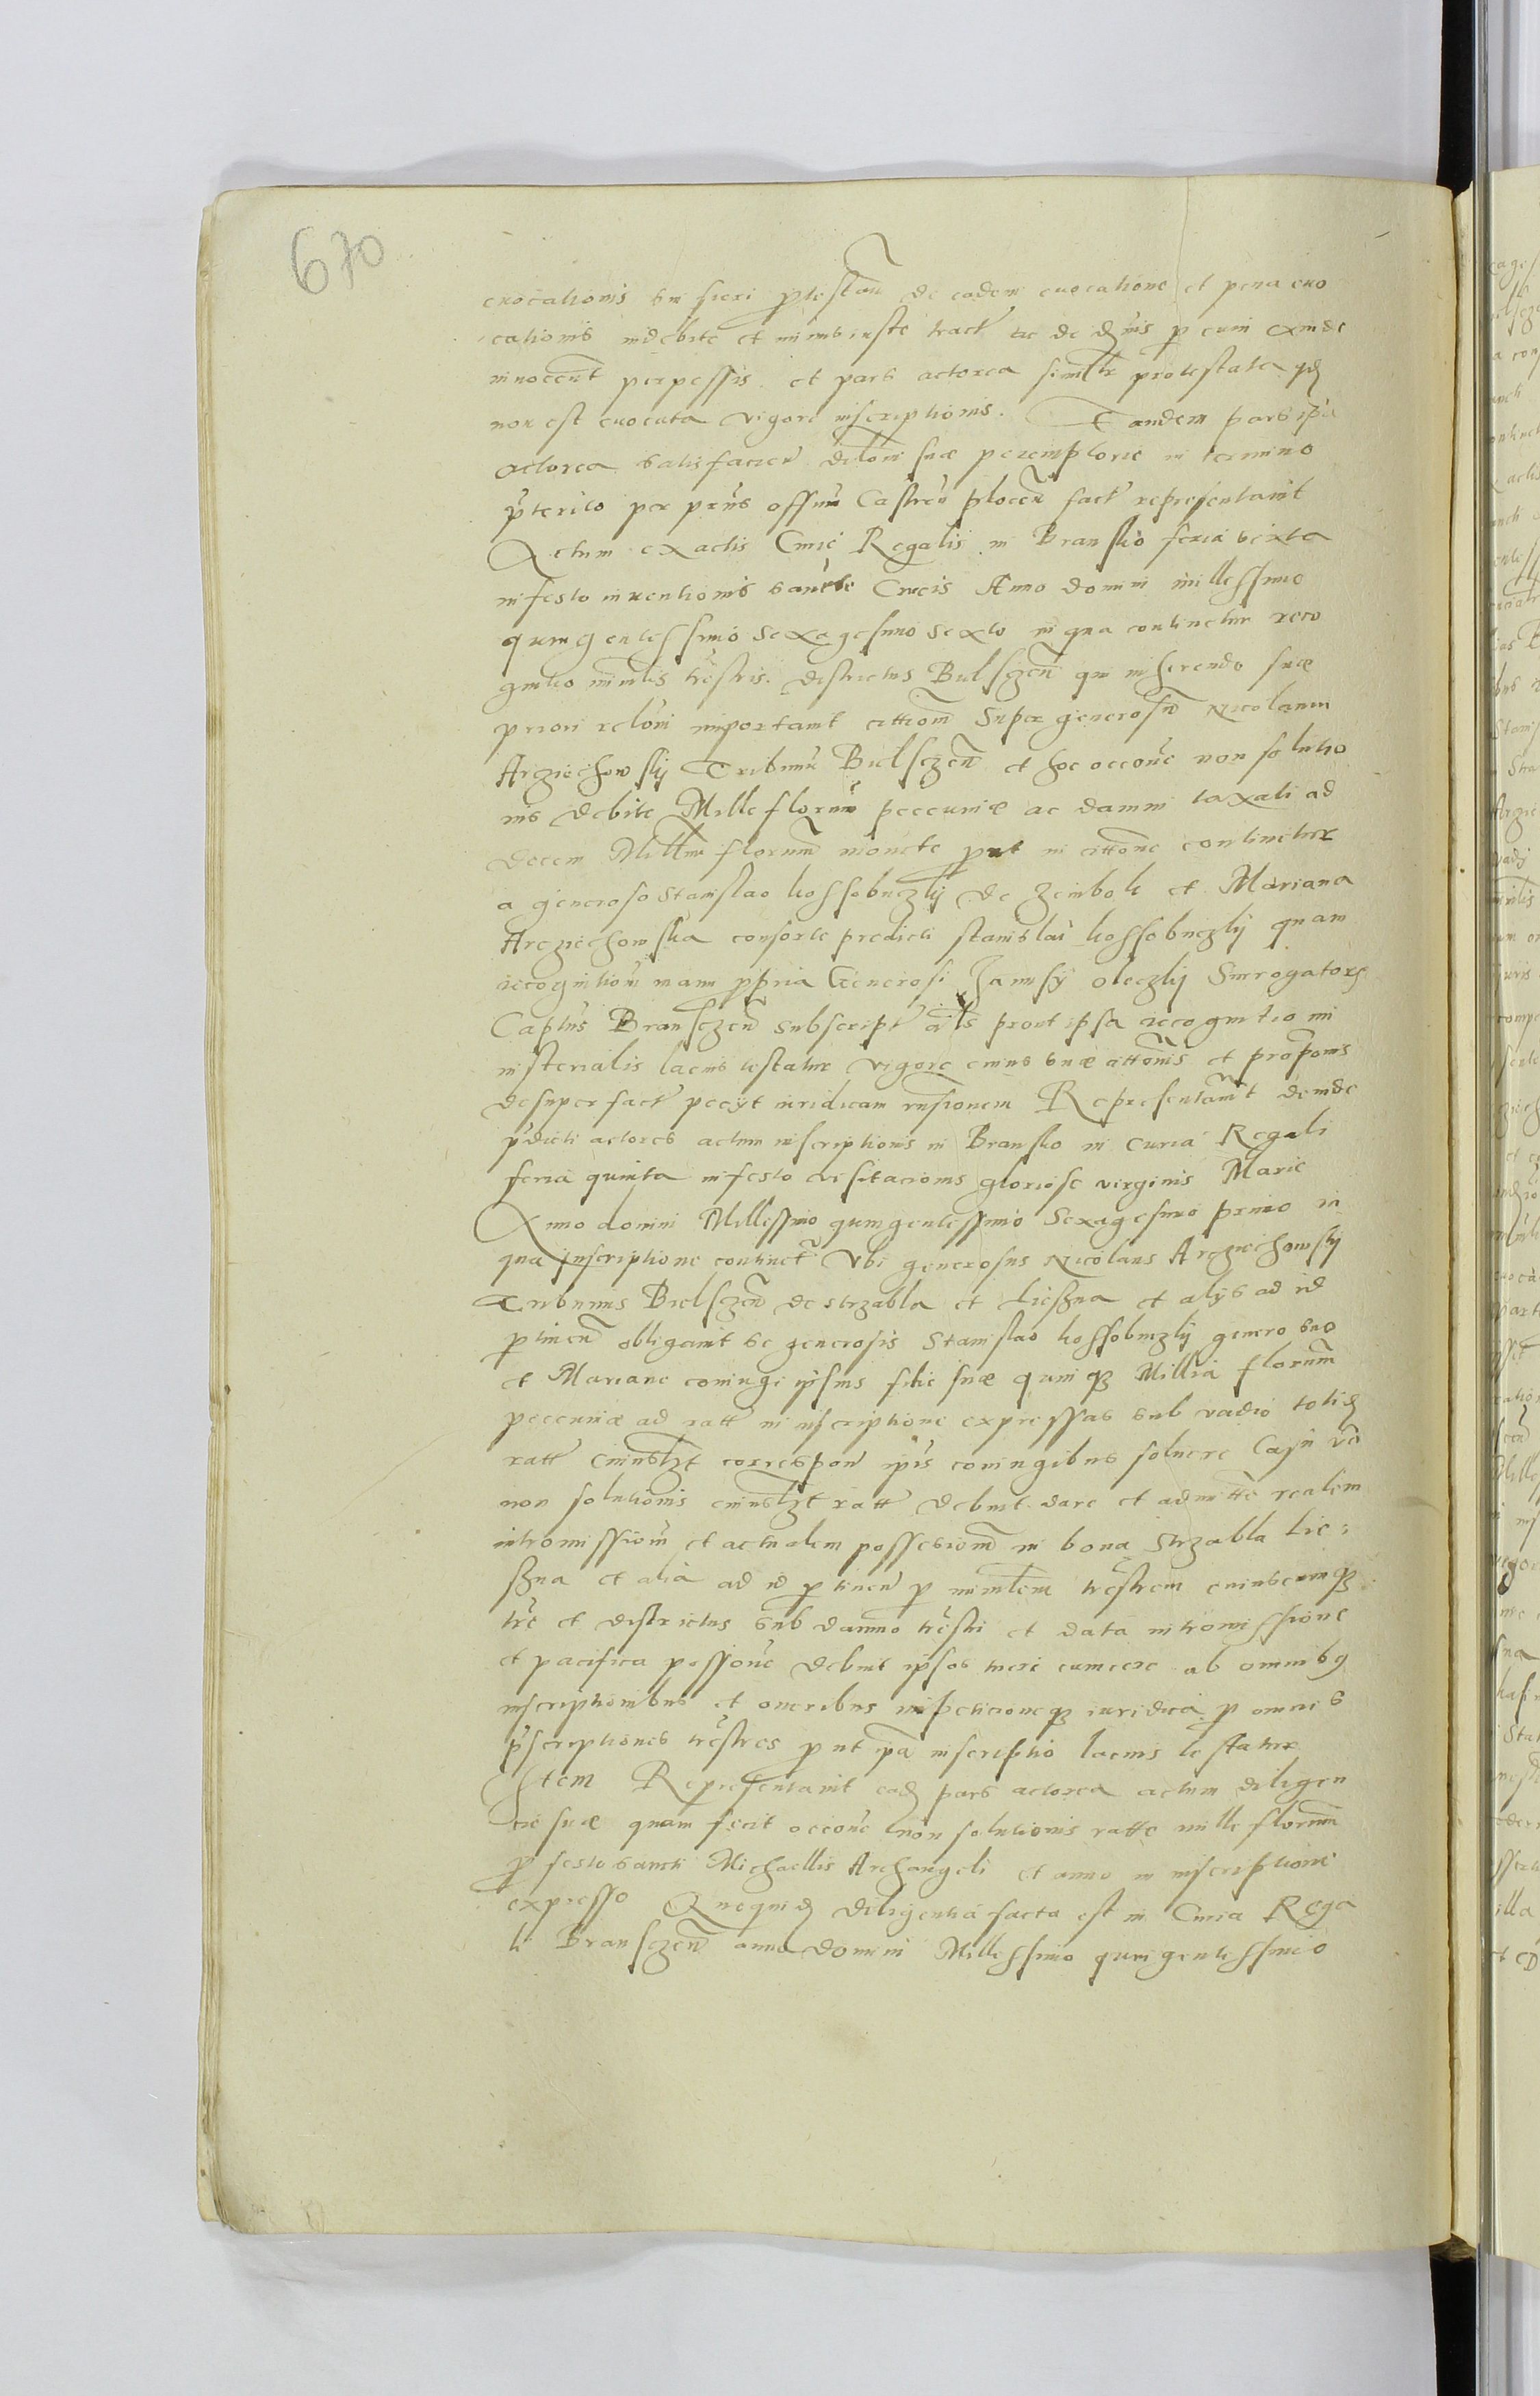 670
euocationis sui fieri ptestan de eadem euocatione et pena euo
cationis indebite et minus iuste tract ac de dnis p eum exinde
innocent perpessis. et parti actorea similr protestata qd
non est euocata vigore inscriptionis. Tandem pars ipa
actorea satisfacien dilõni suæ peremptorie in termino
pterito per pñs offium Castren plocen fact representauit
Actum ex actis Curie Regalis in Bransko feria sexta
in festo inuentionis sancte Crucis Anno domini millessimo
quingentessimo sexagesimo sexto in qua continetur reco
gnitio minilis trestris districtus Bielsczen qui inherendo suæ
priori relõni importauit cittiom super generosu Nicolaum
Arcziechowsky Tribunu Bielsczen et hoc occone non solutio
nis debite Mille florenu peccuniæ ac damni taxati ad
decem Millia florenu monete put in cittone continetur
a generoso Stanislao kossobuczky de zembole et Mariana
Arcziechowska consorte predicti stanislai kossobuczky quam
recognitiom manu ppria Generosi Janusy oleczky Surrogatoris
Captus Bransczen subscript als prout ipsa recognitio mi
nisterialis lacius testatur vigore cuius suæ cittonis et proponis
desuper fact pecÿt iuridicam rnsionem Representauit deinde
pdicti actores actum inscriptionis in Bransko in curia Regali
feria quinta in festo visitacionis gloriose virginis Marie
Anno domini Millessimo quingentessimo Sexagesimo primo in
qua inscriptione continet Vbi generosus Nicolaus Arcziechowsky
Tribunus Bielsczen de strzabla et Liessna et alÿs ad id
ptinen obligauit se generosis Stanislao kossobuczky genero suo
et Mariane coniugi ipsius filie suæ quinqz Millia florenu
peccuniæ ad ratt in inscriptione expressas sub vadio totid
ratt cuiuslzt correspon ipis coniugibus soluere Casu vo
non solutionis cuiuslzt ratt debuit dare et admitte realem
intromissiom et actualem possesiom in bona Strzabla Lie:
ssna et alia ad id ptinen p minilem trestrem cuiuscumqz
tre et districtus sub damno trestri et data intromissione
et pacifica possione debuit ipsos tueri euincere ab omnibus
inscriptionibus et oneribus impeticioneqz iuridica p omnes
pscriptiones trestres put ipa inscriptio lacius testatur
Item Representauit ead pars actorea actum diligen
cie suæ quam fecit occone non solutionis ratte mille florenu
p festo sancti Michaellis Archangeli et anno in inscriptione
expresso Quequid diligentia facta est in Curia Rega
li Bransczen anno domini Millessimo quingentessimo